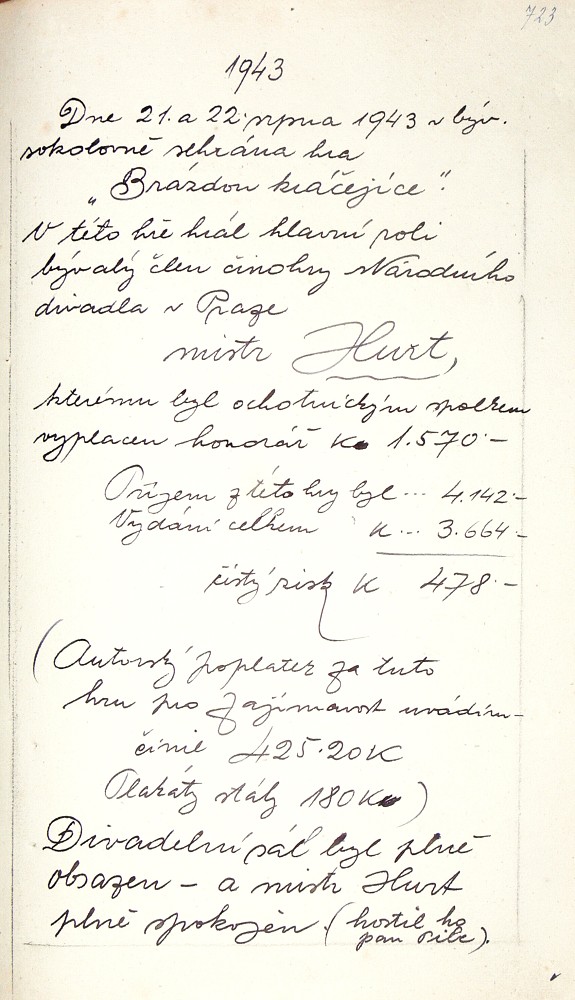 723
1943
Dne 21. a 22. srpna 1943 v býv.
sokolovně sehrána hra
„Brázdou kráčejíce".
V této hře hrál hlavní roli
bývalý člen činohry Národního
divadla v Praze
mistr Hurt,
kterému byl ochotnickým spolkem
vyplacen honorář K 1.570·–
Příjem z této hry byl ... 4.142·–
Vydání celkem K ... 3.664·–
čistý zisk K 478·–
(Autorský poplatek za tuto
hru pro zajímavost uvádím–
činil 425·20 K
Plakáty stály 180 K)
Divadelní sál byl plně
obsazen – a mistr Hurt
plně spokojen. (hostil ho
pan).